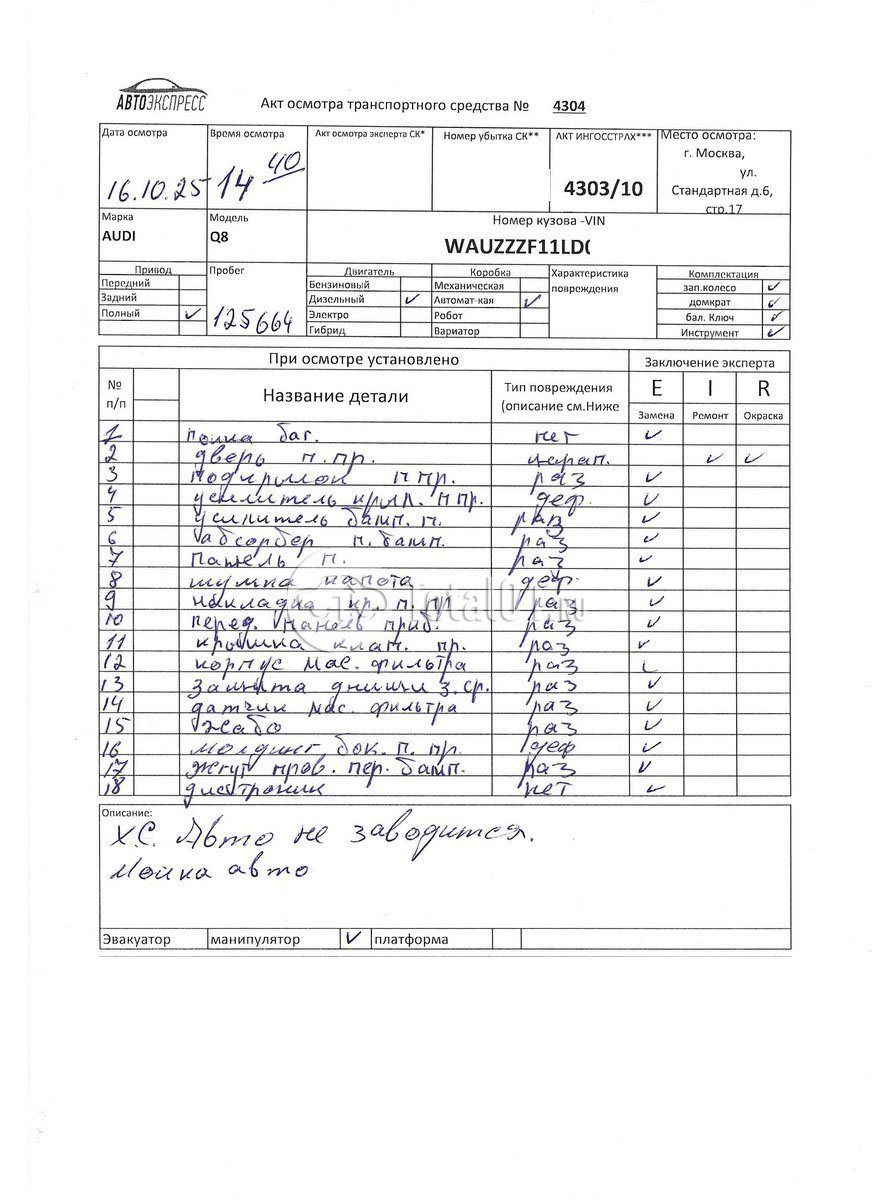 АВТОЭКСПРЕСС
Акт осмотра транспортного средства № 4304
Дата осмотра Время осмотра Акт осмотра эксперта СК* Номер убытка СК** АКТ ИНГОССТРАХ*** Место осмотра:
16.10.25 14 40 4303/10 г. Москва,
ул.
Стандартная д.6,
стр.17
Марка Модель Номер кузова -VIN
AUDI Q8 WAUZZZF11LD(
Привод Пробег Двигатель Коробка Характеристика повреждения Комплектация
Передний Бензиновый Механическая зап.колесо ✓
Задний Дизельный ✓ Автомат-кая ✓ домкрат ✓
Полный ✓ 125664 Электро Робот бал. Ключ ✓
Гибрид Вариатор Инструмент ✓
При осмотре установлено Заключение эксперта
№ п/п Название детали Тип повреждения (описание см.Ниже E I R
Замена Ремонт Окраска
1 полка баг. нет ✓
2 дверь п.пр. царап. ✓ ✓
3 подкрылок п пр. раз ✓
4 усилитель крыл. п пр. деф. ✓
5 усилитель бамп. п. раз ✓
6 абсорбер п. бамп. раз ✓
7 панель п. раз ✓
8 шумка капота деф. ✓
9 накладка кр. п. пр раз ✓
10 перед. панель приб. раз ✓
11 крышка клап. пр. раз ✓
12 корпус мас. фильтра раз ✓
13 защита днища з. ср. раз ✓
14 датчик мас. фильтра раз ✓
15 жабо раз ✓
16 молдинг бок. п. пр. деф ✓
17 жгут пров. пер. бамп. раз ✓
18 дистроник нет ✓
Total01.ru
Описание:
Х.С. Авто не заводится.
Мойка авто
Эвакуатор манипулятор ✓ платформа